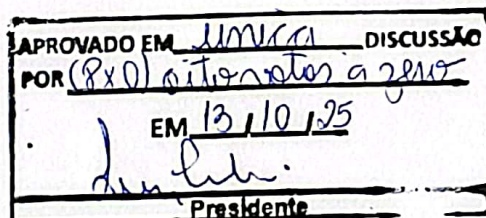 APROVADO EM única DISCUSSÃO
POR (8x0) oito votos a zero
EM 13/10/25
Presidente